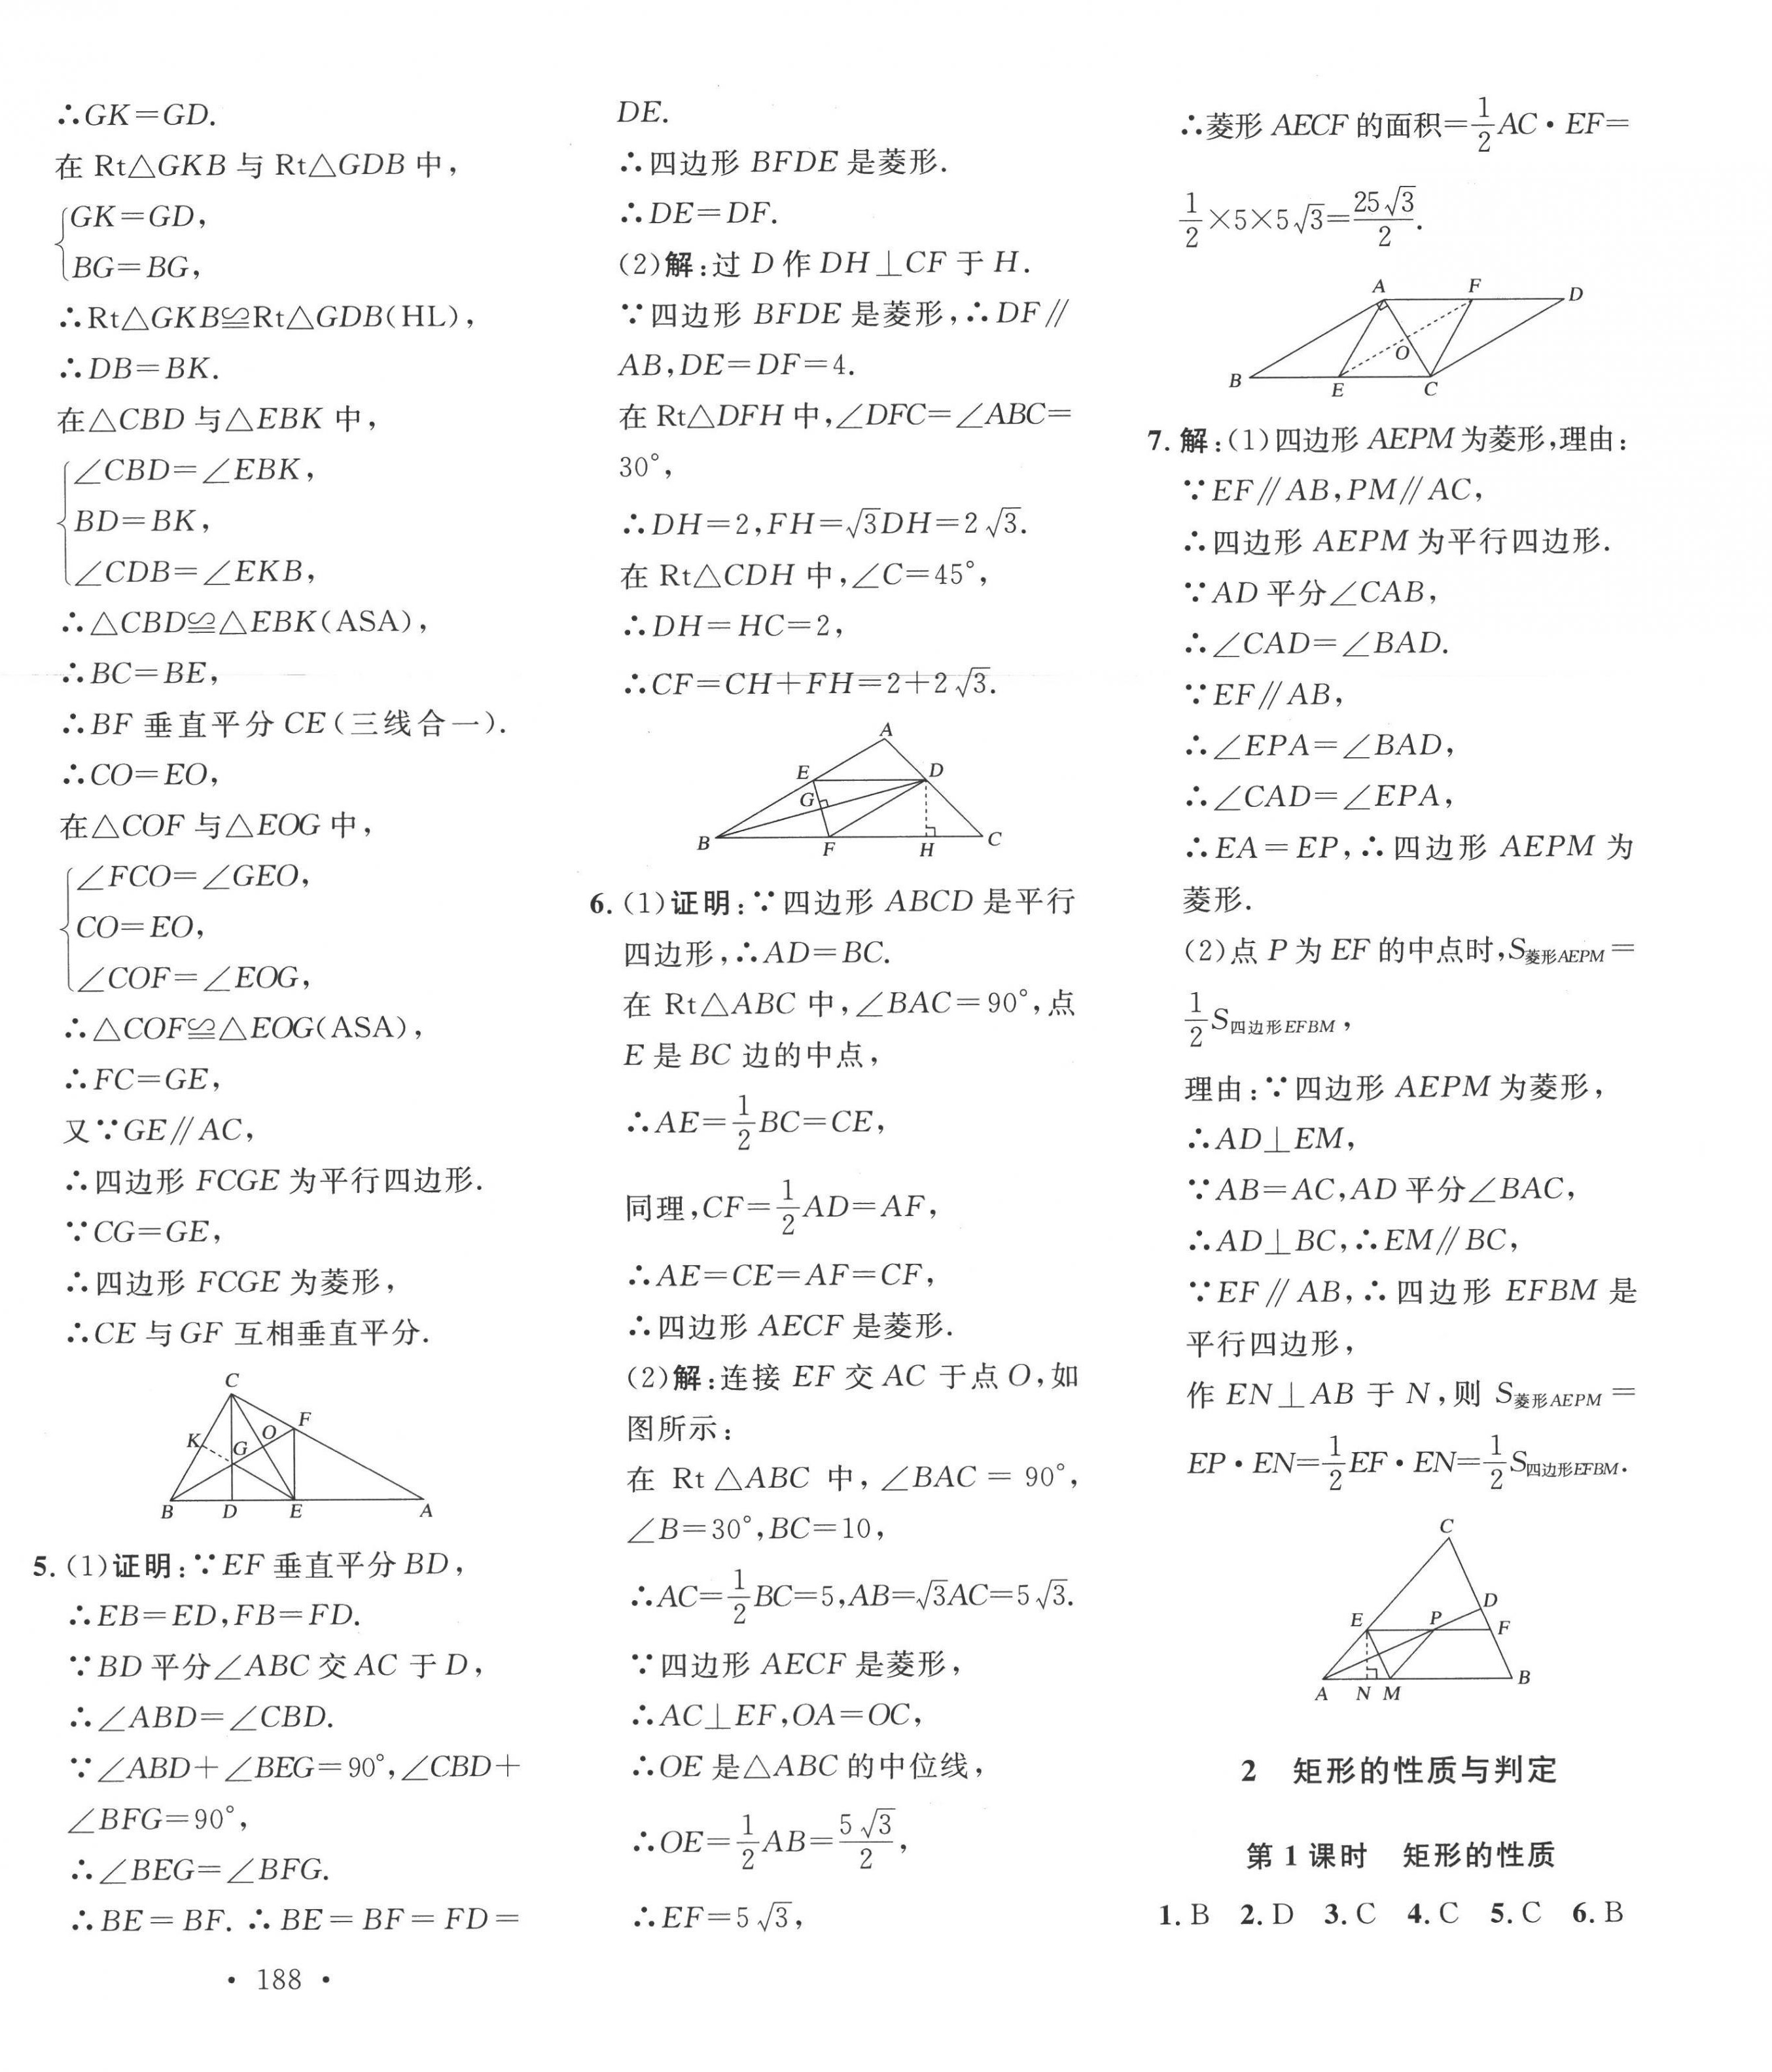 ∴GK=GD.
在 Rt△GKB 与 Rt△GDB 中,
GK=GD,
BG=BG,
∴Rt△GKB≌Rt△GDB(HL),
∴DB=BK.
在△CBD 与△EBK 中,
∠CBD=∠EBK,
BD=BK,
∠CDB=∠EKB,
∴△CBD≌△EBK(ASA),
∴BC=BE,
∴BF 垂直平分 CE(三线合一).
∴CO=EO,
在△COF 与△EOG 中,
∠FCO=∠GEO,
CO=EO,
∠COF=∠EOG,
∴△COF≌△EOG(ASA),
∴FC=GE,
又∵GE∥AC,
∴四边形 FCGE 为平行四边形.
∵CG=GE,
∴四边形 FCGE 为菱形,
∴CE 与 GF 互相垂直平分.
C
F
K
G
O
B
D
E
A
5. (1)证明:∵EF 垂直平分 BD,
∴EB=ED,FB=FD.
∵BD 平分∠ABC 交 AC 于 D,
∴∠ABD=∠CBD.
∵∠ABD+∠BEG=90°,∠CBD+
∠BFG=90°,
∴∠BEG=∠BFG.
∴BE=BF. ∴BE=BF=FD=
DE.
∴四边形 BFDE 是菱形.
∴DE=DF.
(2)解:过 D 作 DH⊥CF 于 H.
∵四边形 BFDE 是菱形,∴DF∥
AB,DE=DF=4.
在 Rt△DFH 中,∠DFC=∠ABC=
30°,
∴DH=2,FH=√3DH=2√3.
在 Rt△CDH 中,∠C=45°,
∴DH=HC=2,
∴CF=CH+FH=2+2√3.
A
E
D
G
B
F
H
C
6. (1)证明:∵四边形 ABCD 是平行
四边形,∴AD=BC.
在 Rt△ABC 中,∠BAC=90°,点
E 是 BC 边的中点,
∴AE=1/2BC=CE,
同理,CF=1/2AD=AF,
∴AE=CE=AF=CF,
∴四边形 AECF 是菱形.
(2)解:连接 EF 交 AC 于点 O,如
图所示:
在 Rt△ABC 中,∠BAC=90°,
∠B=30°,BC=10,
∴AC=1/2BC=5,AB=√3AC=5√3.
∵四边形 AECF 是菱形,
∴AC⊥EF,OA=OC,
∴OE 是△ABC 的中位线,
∴OE=1/2AB=5√3/2,
∴EF=5√3,
∴菱形 AECF 的面积=1/2AC·EF=
1/2×5×5√3=25√3/2.
A
F
D
O
B
E
C
7. 解:(1)四边形 AEPM 为菱形,理由:
∵EF∥AB,PM∥AC,
∴四边形 AEPM 为平行四边形.
∵AD 平分∠CAB,
∴∠CAD=∠BAD.
∵EF∥AB,
∴∠EPA=∠BAD,
∴∠CAD=∠EPA,
∴EA=EP,∴四边形 AEPM 为
菱形.
(2)点 P 为 EF 的中点时,S菱形AEPM=
1/2S四边形EFBM,
理由:∵四边形 AEPM 为菱形,
∴AD⊥EM,
∵AB=AC,AD 平分∠BAC,
∴AD⊥BC,∴EM∥BC,
∵EF∥AB,∴四边形 EFBM 是
平行四边形,
作 EN⊥AB 于 N,则 S菱形AEPM=
EP·EN=1/2EF·EN=1/2S四边形EFBM.
C
D
E
P
F
A
N
M
B
2 矩形的性质与判定
第 1 课时 矩形的性质
1. B 2. D 3. C 4. C 5. C 6. B
· 188 ·